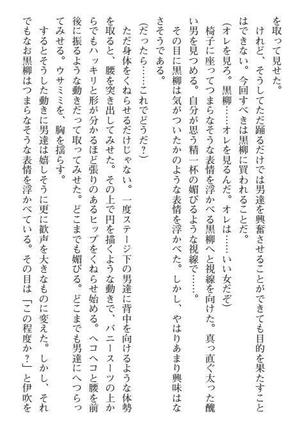 を取って見せた。
けれど、そうしてただ踊るだけでは男達を興奮させることができても目的を果たすこと
はできない。今回すべきは黒柳に買われることだ。
（オレを見ろ。黒柳……オレを見るんだ。オレは……いい女だぞ）
椅子に座ってつまらなそうな表情を浮かべる黒柳へと視線を向けた。真っ直ぐ太った醜
い男を見つめる。自分が思う精一杯の媚びるような視線で……。
その目に黒柳は気がついたかのような表情を浮かべた。しかし、やはりあまり興味はな
さそうである。
（だったら……これでどうだ？）
ただ身体をくねらせるだけじゃない。一度ステージ下の男達に背中を向けるような体勢
を取ると、腰を突き出してみせた。その上で円を描くような動きで、バニースーツの上か
らでもハッキリと形が分かるほど張りのあるヒップをくねらせ始める。ヘコヘコと腰を前
後に振るような動きだって取ってみせた。どこまでも媚びる。どこまでも男達にへつらっ
てみせる。ウサミミを、胸を揺らす。
するとそうした動きに男達は嬉しそうに更に歓声を大きなものに変えた。しかし、それ
でもなお黒柳はつまらなそうな表情を浮かべている。その目は「この程度か？」と伊吹を